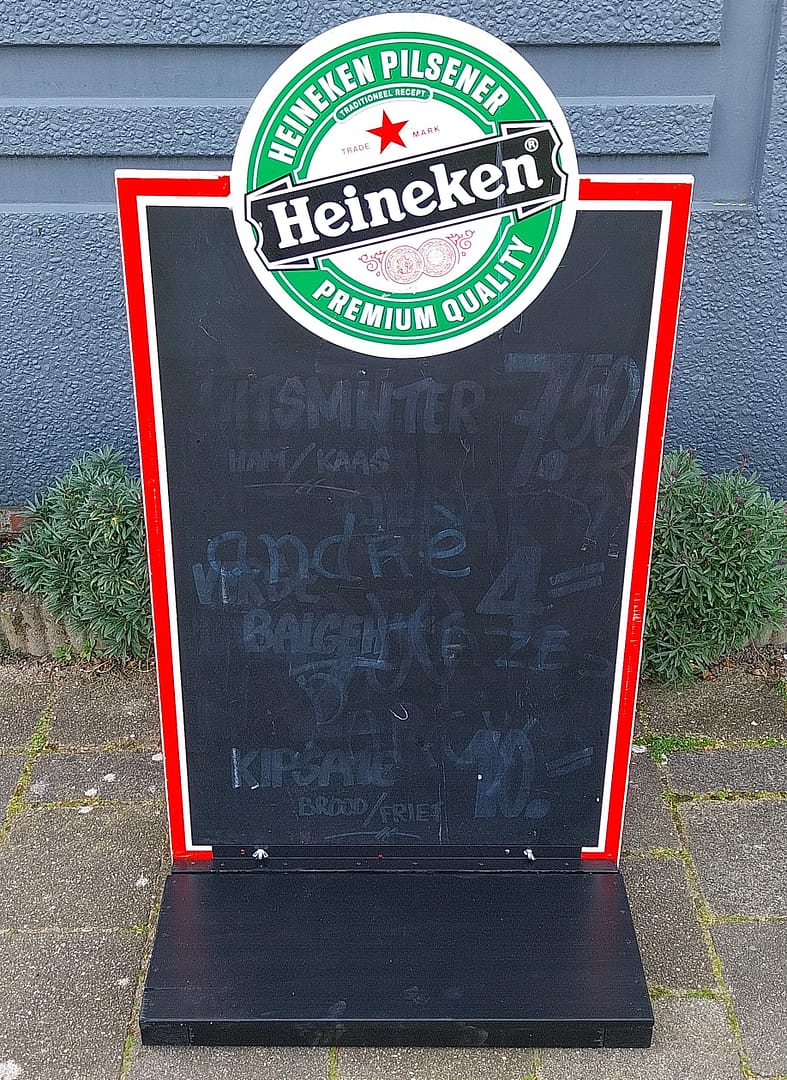 HEINEKEN PILSENER
TRADITIONEEL RECEPT
TRADE MARK
Heineken®
PREMIUM QUALITY
UITSMIJTER 7.50
HAM/KAAS
andrè
4=
KIPSATE 10.=
BROOD/FRIET